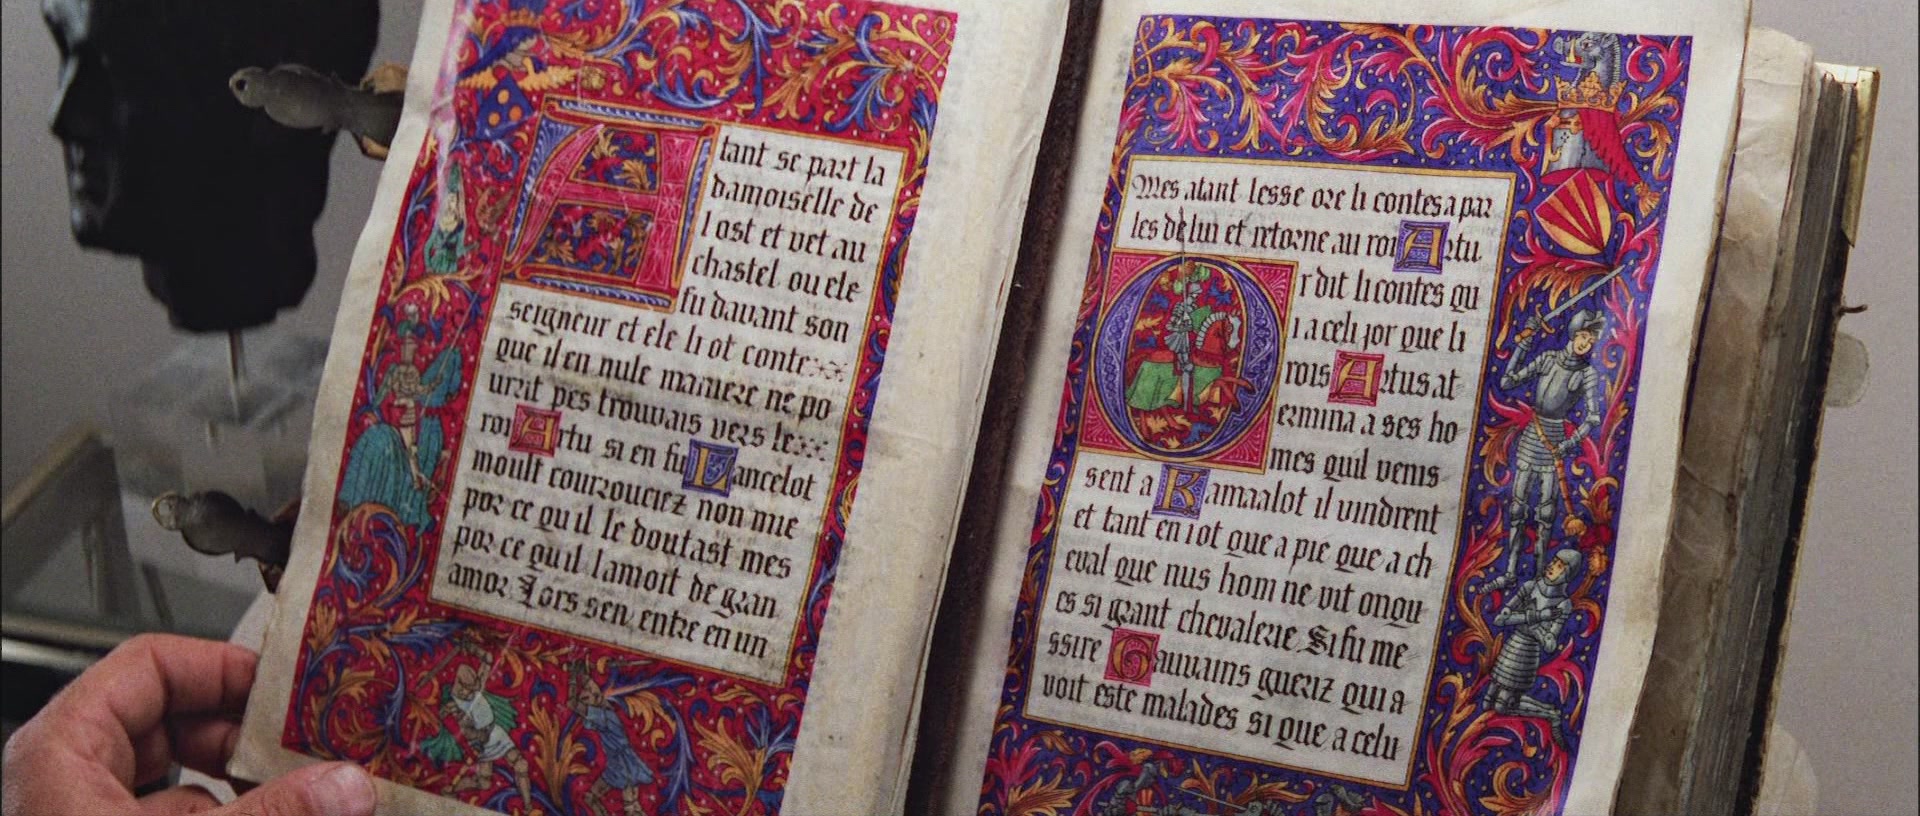 Atant se part la
damoiselle de
l ost et vet au
chastel ou ele
fu davant son
seigneur et ele li ot conte
que il en nule maniere ne po
urrit pes trouvais vers le
roi Artu si en fu Lancelot
moult courrouciez non mie
por ce qu il le doutast mes
por ce quil lamoit de gran
amor Lors sen entre en un
Mes atant lesse ore li contes a par
les de lui et retorne au roi Artu.
Or dit li contes qu
i a celi jor que li
rois Artus at
ermina a ses ho
mes quil venis
sent a Kamaalot il vindrent
et tant en i ot que a pie que a ch
eval que nus hom ne vit onqu
es si grant chevalerie Si fu me
ssire Gauvains gueriz qui a
voit este malades si que a celu